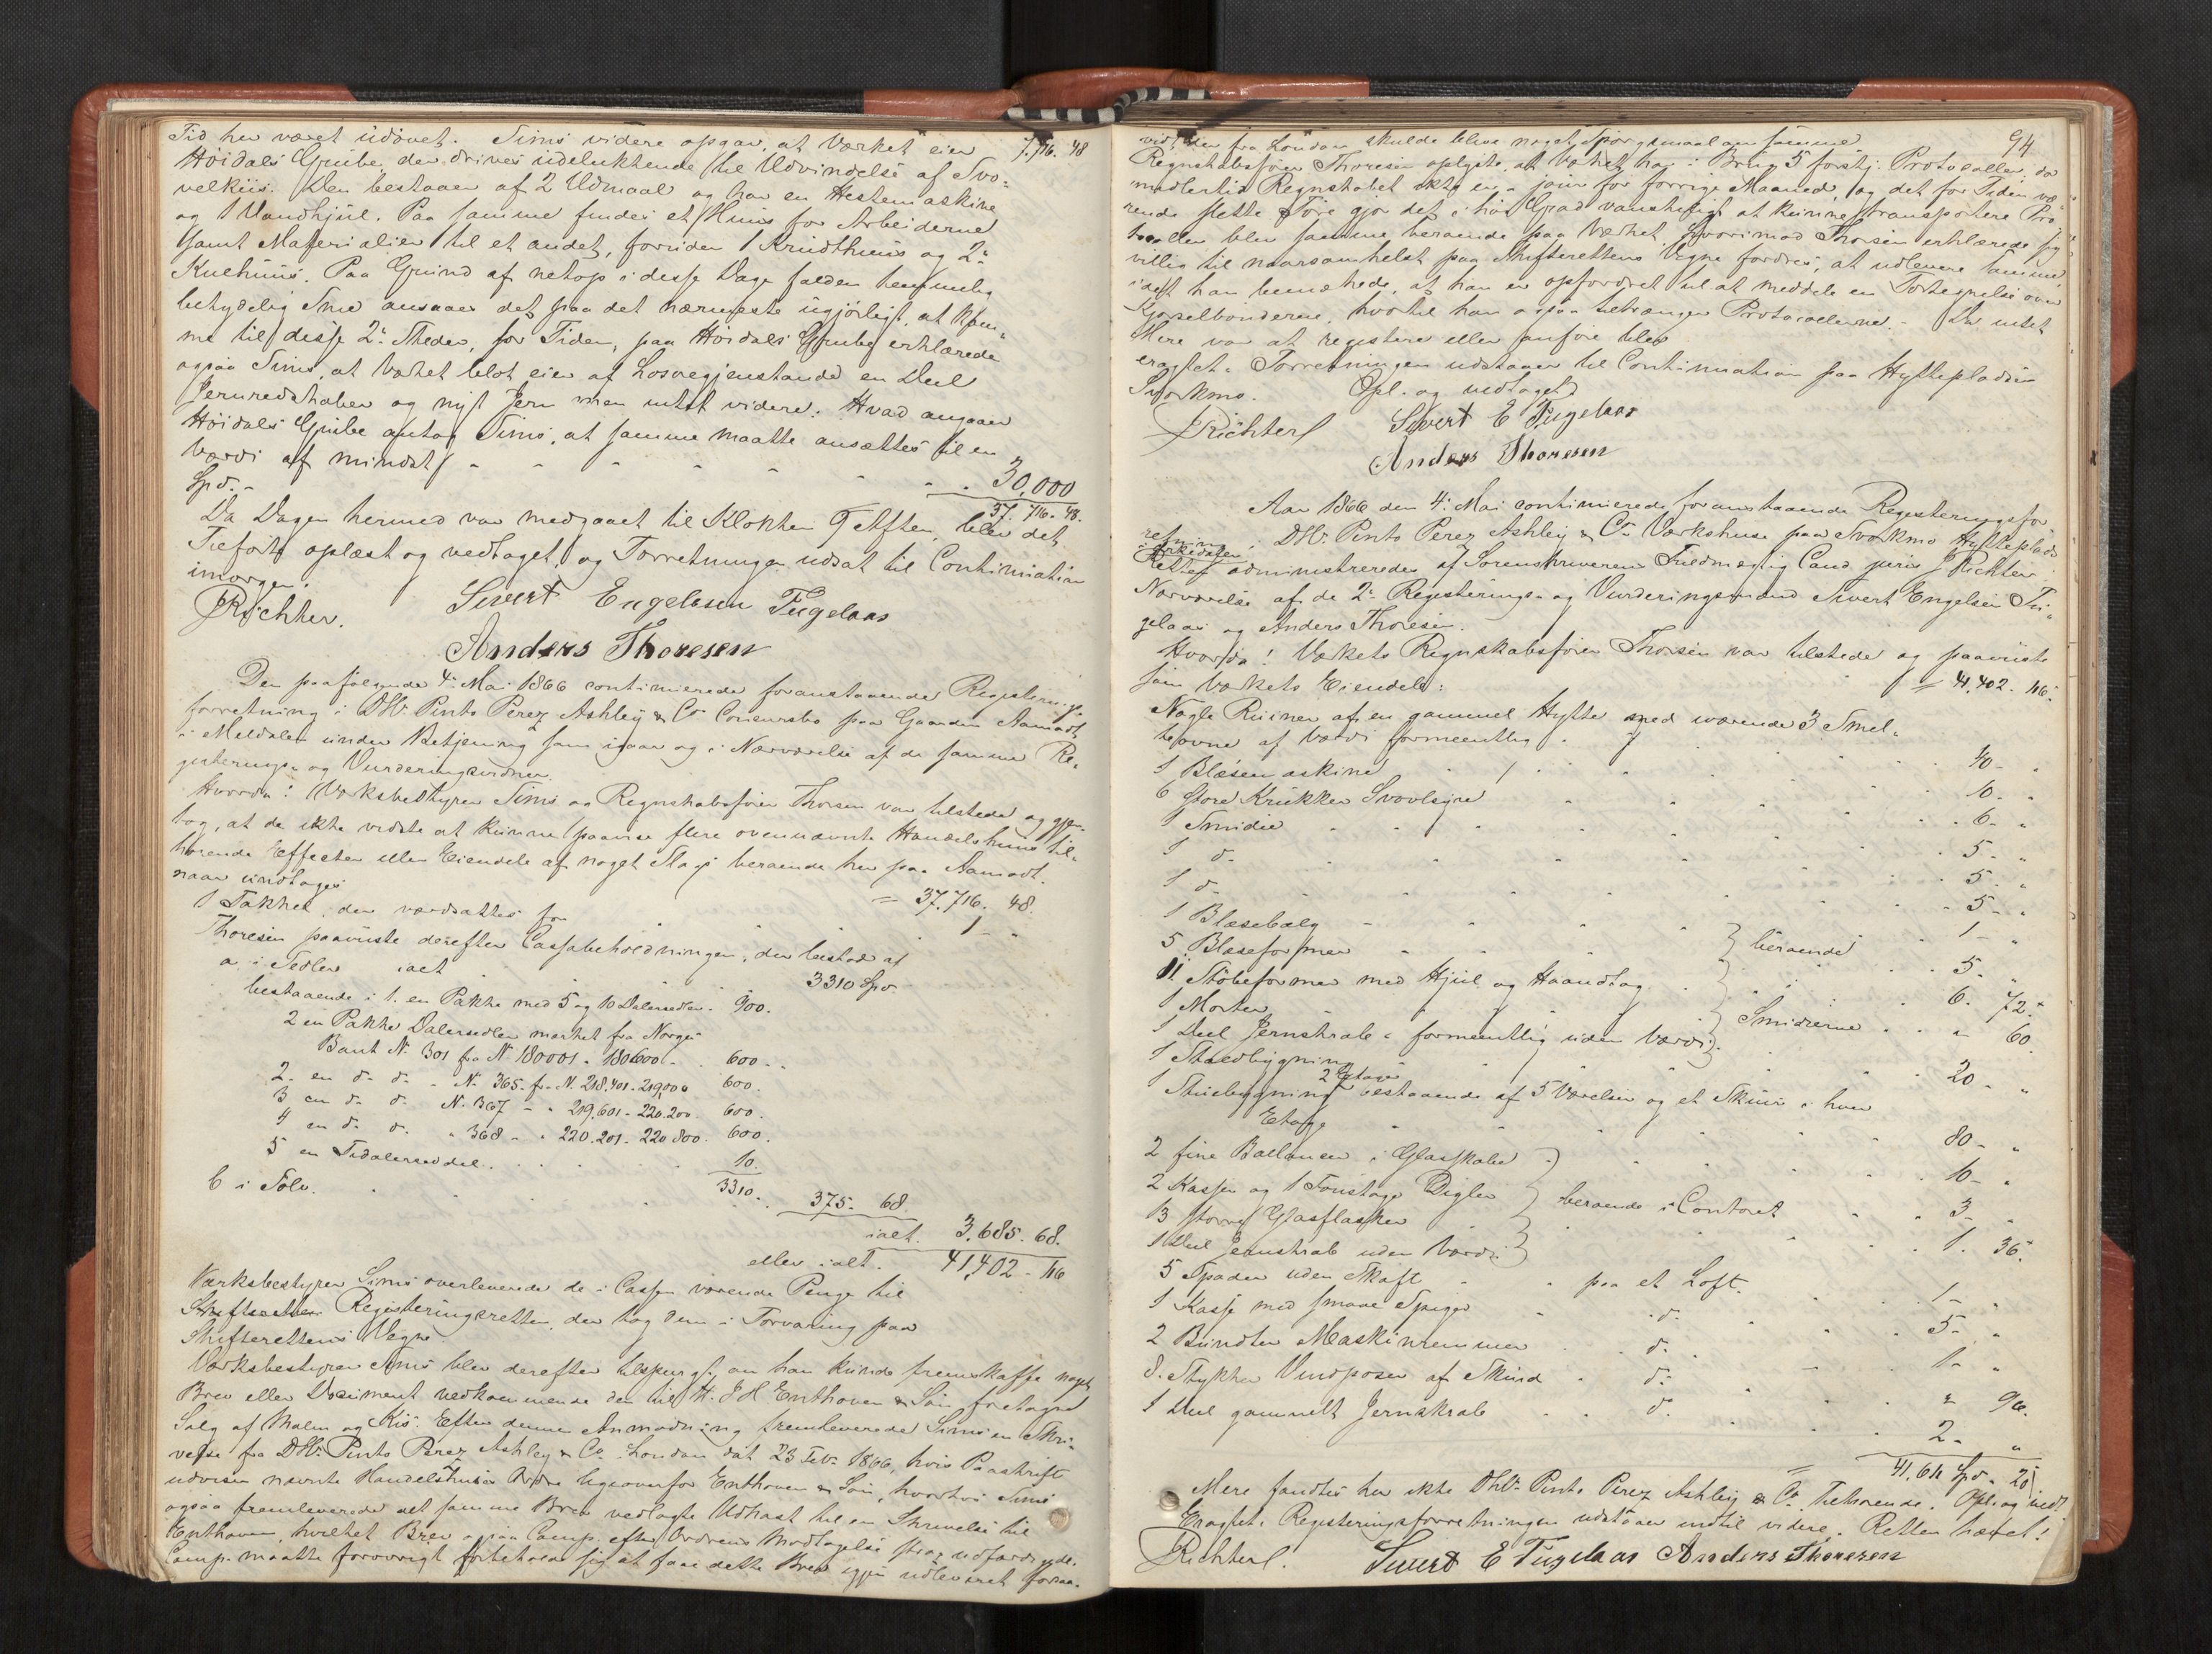 Tid her været udövet. Sims videre opgav, at Værket eier 7,716. 48
Höidals Grube, der drives udelukkende til Udvindelse af Svo-
velkiis. Den bestaaer af 2 Udmaal og har en Hestemaskine
og 1 Vandhjul. Paa samme findes et Huus for Arbeiderne
samt Materialier til et andet, foruden 1 Krudthuus og 2de
Kulhuus. Paa Grund af netop i disse Dage falden
betydelig Snee ansaaes det paa det nærmeste ugjörligt, at kom-
me til disse 2de Steder, for Tiden, paa Höidals Grube erklærede
ogsaa Sims, at Værket blot eier af Lösöregjenstande en Deel
Jernredskaber og nyt Jern men intet videre. Hvad angaaer
Höidals Grube antog Sims, at samme maatte ansættes til en
Værdi af mindst - - - - - - 30,000
Spd. - 37,716. 48.
Da Dagen hermed var medgaaet til Klokken 9 Aften, blev det
Tilförte oplæst og vedtaget, og Forretningen udsat til Continuation
imorgen.
JRichter. Sivert Engelsen Fugelaas
Anders Thoresen
Den paafölgende 4de Mai 1866 continuerede foranstaaende Registerings-
forretning i DHr. Pinto Perez Ashley & Co Concursbo paa Gaarden Aamodt
i Meldalen under Betjening som igaar og i Nærværelse af de samme Re-
gisterings- og Vurderingsvidner.
Hvorda! Værksbestyrer Sims og Regnskabsförer Thoresen var tilstede og
tog, at de ikke vidste at kunne paavise flere ovennævnte Handelshuus til-
hörende Effecter eller Eiendele af noget Slags beroende her paa Aamodt.
naar undtages = 37,716. 48.
1 , der værdsattes for 1 - "
Thoresen paaviste derefter Cassabeholdningen, der bestod af
a i Sedler ialt 3310 Spd
bestaaende i 1. en Pakke med 5 og 10 Dalersedler. 900.
2 en Pakke Dalersedler mærket fra Norges
Bank N. 301 fra N. 180001 - 180600 - 600 -
2. en do. do. - N. 365. fra N. 218,401 - 219,000 600.
3 en do. do. N. 367 - " 219,601 - 220,200. 600.
4 en do. do. " 368 - " 220,201 - 220,800. 600.
5 en Tidalerseddel. 10.
3310.
b i Sölv. 375. 68.
ialt. 3,685. 68.
eller ialt. 41,402 - 116
Værksbestyrer Sims overleverede de i Cassen værende Penge til
Registeringsretten, der tog dem i Forvaring paa
Skifterettens Vegne.
Værksbestyrer Sims blev derefter tilspurgt, om han kunde fremskaffe noget
Brev eller Document vedkommende den til H. J. H. Enthoven & Sön foretagne
Salg af Malm og Kis. Efter denne Anmodning fremleverede Sims en Skri-
velse fra DHr. Pinto Perez Ashley & Co. London dat 23 Febr. 1866, hvis Paaskrift
udviser nævnte Handelshuses Ordre ligeoverfor Enthoven & Sön, hvorhos Sims
ogsaa fremleverede det samme Brev vedlagte Udkast til en Skrivelse til
Enthoven, hvilket Brev ogsaa Comp. efter Ordrens Modtagelse strax udfærdigede.
Comp. maatte forövrigt forbeholde sig at faae dette Brev igjen udleveret
94
der fra London skulde blive noget Spörgsmaal om samme.
Regnskabsförer Thoresen oplyste, at Værket har i Brug 5 forskj. Protocoller, da
imidlertid Regnskabet ikke er à jour for forrige Maaned, og det for Tiden væ-
rende slette Före gjör det i höi Grad vanskeligt at kunne transportere Pro-
tocoller blev samme beroende paa Værket, hvorimod Thoresen erklærede sig
villig til naarsomhelst paa Skifterettens Vegne fordres, at udlevere samme,
idet han bemærkede, at han er opfordret til at meddele en Fortegnelse over
Gjældbönderne, hvortil han ogsaa behövede Protocollerne. - Da intet
Mere var at registere eller anföre blev
eragtet. Forretningen udstaaer til Continuation paa Hyttepladsen
Svorkmo. Opl. og vedtaget.
JRichter Sivert E Fugelaas
Anders Thoresen
Aar 1866 den 4de Mai continuerede foranstaaende Registeringsfor-
retning i DHr. Pinto Perez Ashley & Co Værkshuse paa Svorkmo Hytteplads
Retten administreredes af Sorenskriverens Fuldmægtig Cand juris J Richter i
Nærværelse af de 2de Registerings- og Vurderingsmænd Sivert Engelsen Fu-
gelaas og Anders Thoresen.
Hvorda! Værkets Regnskabsförer Thoresen var tilstede og paaviste
som Værkets Eiendele: = 41,402. 116.
Nogle Ruiner af en gammel Hytte med værende 3 Smel-
teovne af Værdi formeentlig 40 - "
1 Blæsemaskine 10 - "
6 store Krukker Svovlsyre 6 - "
1 Smidie 5 - "
1 do. 5 - "
1 do. 5 - "
1 Blæsebælg 1 - "
5 Blæseformer beroende 5. "
11 Stöbeformer med Hjul og Haandtag 6. 72.
1 Morter Smidierne " 60
1 Deel Jernskrab - formeentlig uden Værdi
1 Staldbygning 20 - "
1 Stuebygning 2 Etager bestaaende af 5 Værelser og et Skuur i hver
Etage 80 - "
2 fine Ballancer i Glasskabe 10 - "
2 Kasser og 1 Foustage Digler beroende i Contoret 3 - "
13 större Glasflasker 1. 36.
1 Deel Jernskrab uden Værdi
5 Spader uden Skaft paa et Loft. 1 - "
1 Kasse med smaae Spiger do. 5 - "
2 Bundter Maskinremmer do. 1 - "
8. Stykker Vindposer af Skind do. " 96.
1 Deel gammelt Jernskrab do. 2 - "
= 41,611 Spd. 20
Mere fandtes her ikke DHr. Pinto Perez Ashley & Co. Tilhörende. Opl. og vedt.
Eragtet: Registeringsforretningen udstaaer indtil videre. Retten hævet!
JRichter. Sivert E Fugelaas Anders Thoresen